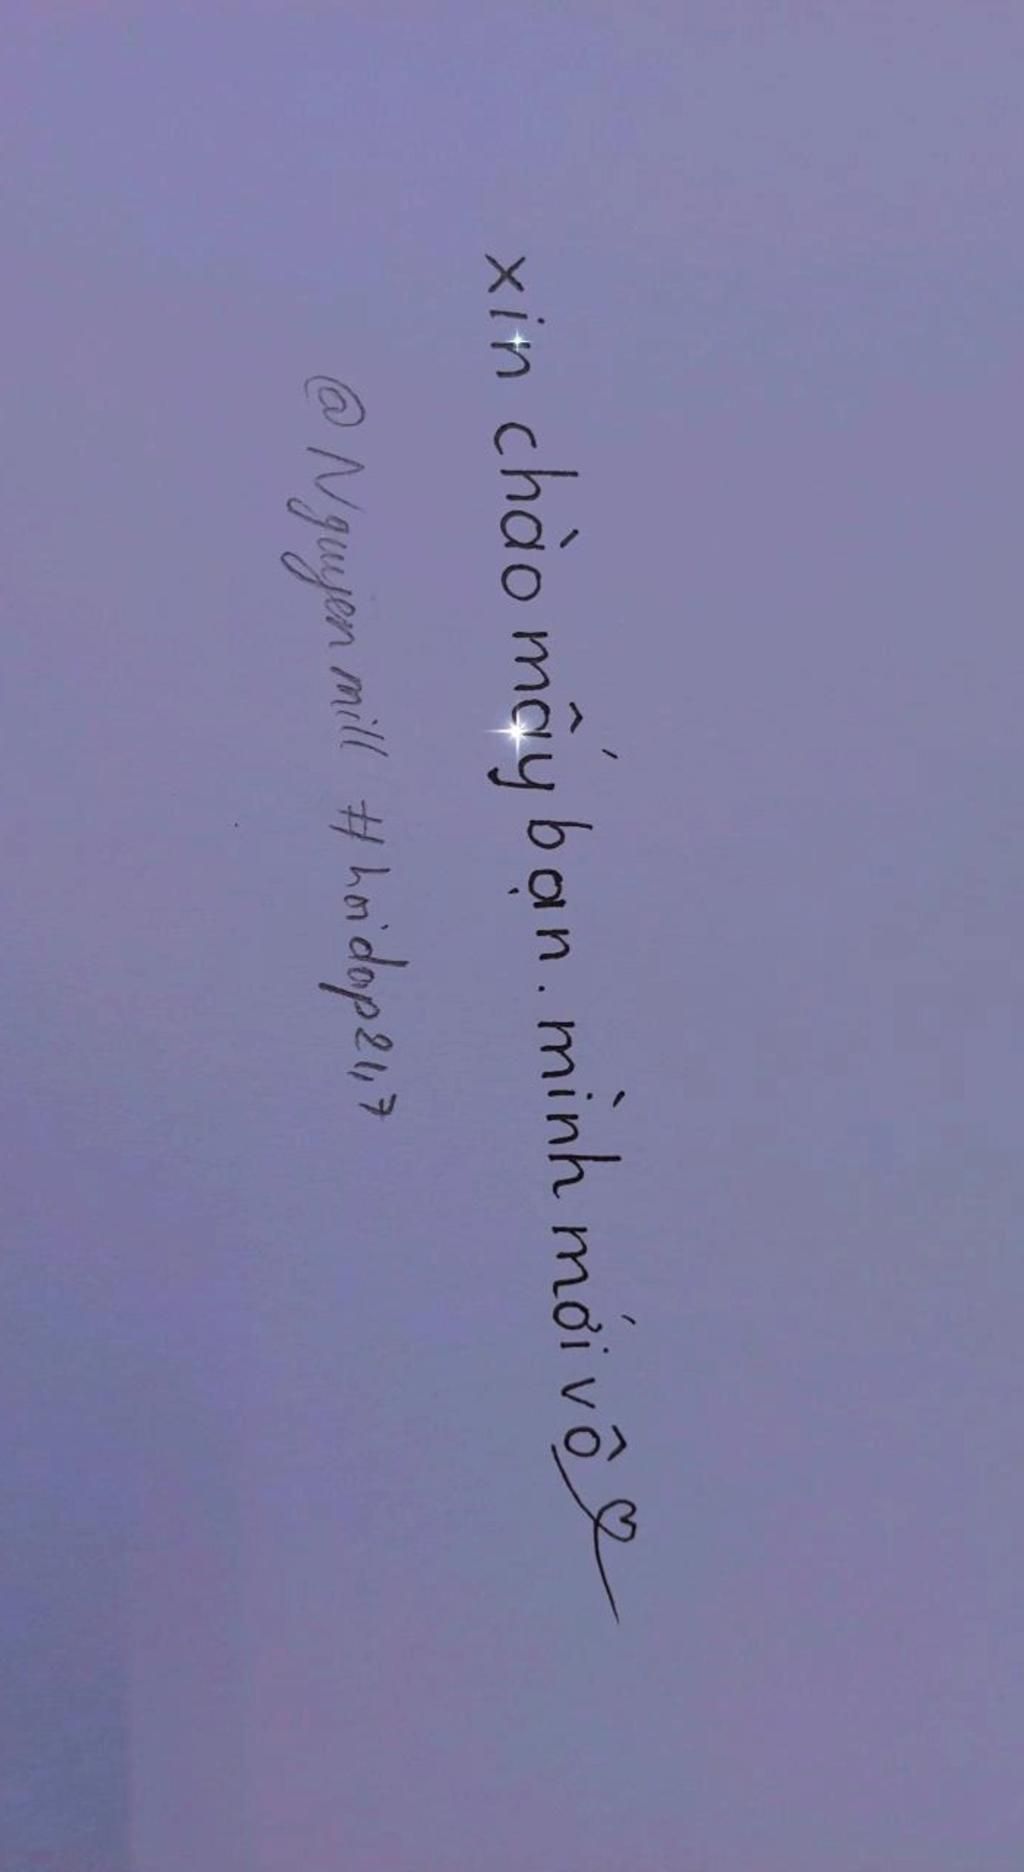 xin chào mấy bạn. mình mới vô
@Nguyenmill #hoidap247